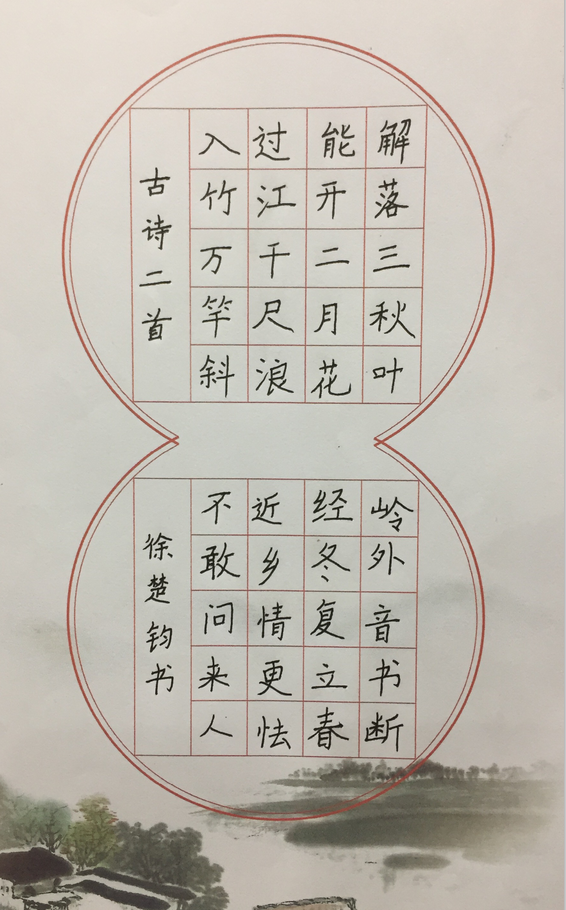 解落三秋叶
能开二月花
过江千尺浪
入竹万竿斜
古诗二首
岭外音书断
经冬复立春
近乡情更怯
不敢问来人
徐楚钧书